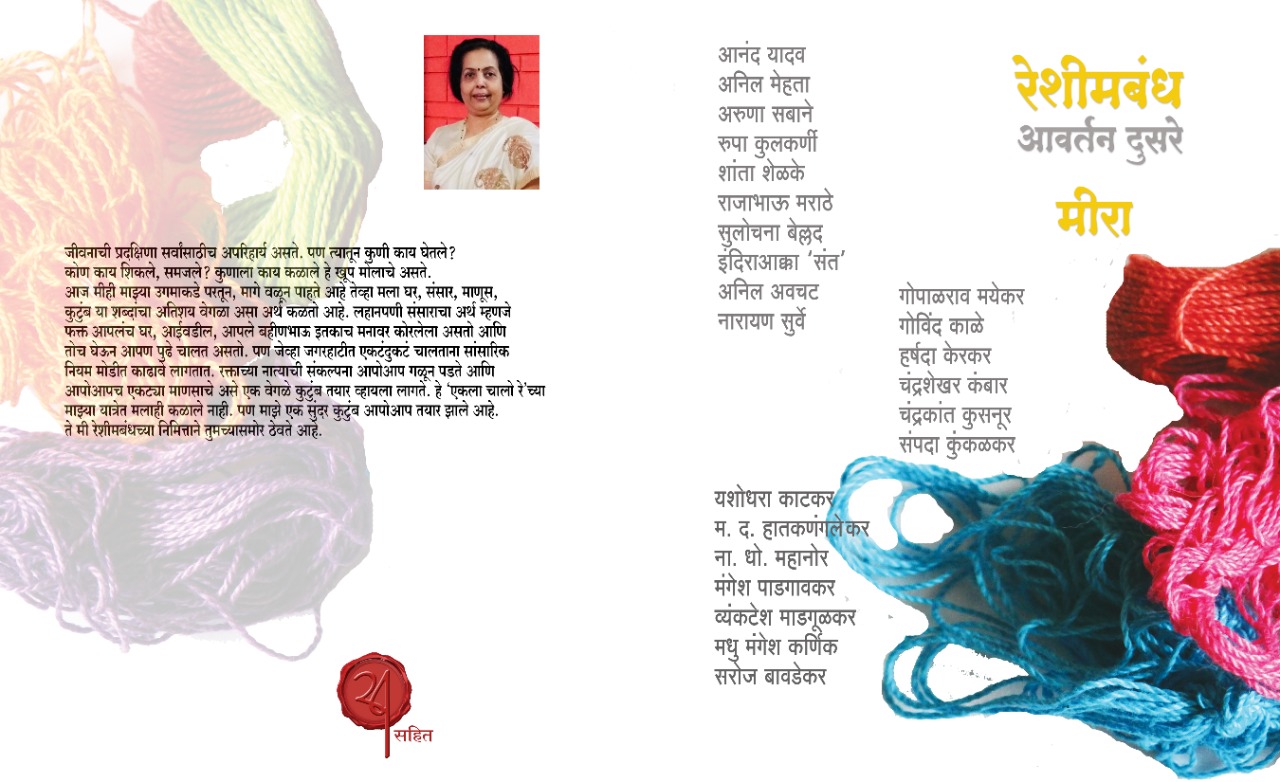 जीवनाची प्रदक्षिणा सर्वांसाठीच अपरिहार्य असते. पण त्यातून कुणी काय घेतले?
कोण काय शिकले, समजले? कुणाला काय कळाले हे खूप मोलाचे असते.
आज मीही माझ्या उगमाकडे परतून, मागे वळून पाहते आहे तेव्हा मला घर, संसार, माणूस,
कुटुंब या शब्दांचा अतिशय वेगळा असा अर्थ कळतो आहे. लहानपणी संसाराचा अर्थ म्हणजे
फक्त आपलंच घर, आईवडील, आपले बहीणभाऊ इतकाच मनावर कोरलेला असतो आणि
तोच घेऊन आपण पुढे चालत असतो. पण जेव्हा जगरहाटीत एकटंदुकटं चालताना सांसारिक
नियम मोडीत काढावे लागतात. रक्ताच्या नात्याची संकल्पना आपोआप गळून पडते आणि
आपोआपच एकट्या माणसाचे असे एक वेगळे कुटुंब तयार व्हायला लागते. हे ‘एकला चालो रे’च्या
माझ्या यात्रेत मलाही कळाले नाही. पण माझे एक सुंदर कुटुंब आपोआप तयार झाले आहे.
ते मी रेशीमबंधच्या निमित्ताने तुमच्यासमोर ठेवते आहे.
सहित
आनंद यादव
अनिल मेहता
अरुणा सबाने
रुपा कुलकर्णी
शांता शेळके
राजाभाऊ मराठे
सुलोचना बेल्लद
इंदिराआक्का ‘संत’
अनिल अवचट
नारायण सुर्वे
रेशीमबंध
आवर्तन दुसरे
मीरा
गोपाळराव मयेकर
गोविंद काळे
हर्षदा केरकर
चंद्रशेखर कंबार
चंद्रकांत कुसनूर
संपदा कुंकळकर
यशोधरा काटकर
म. द. हातकणंगलेकर
ना. धो. महानोर
मंगेश पाडगावकर
व्यंकटेश माडगूळकर
मधु मंगेश कर्णिक
सरोज बावडेकर